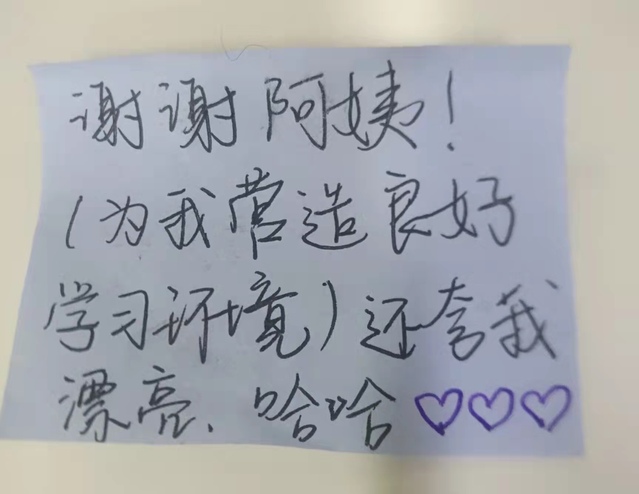 谢谢阿姨！
(为我营造良好
学习环境)还夸我
漂亮、哈哈♡♡♡